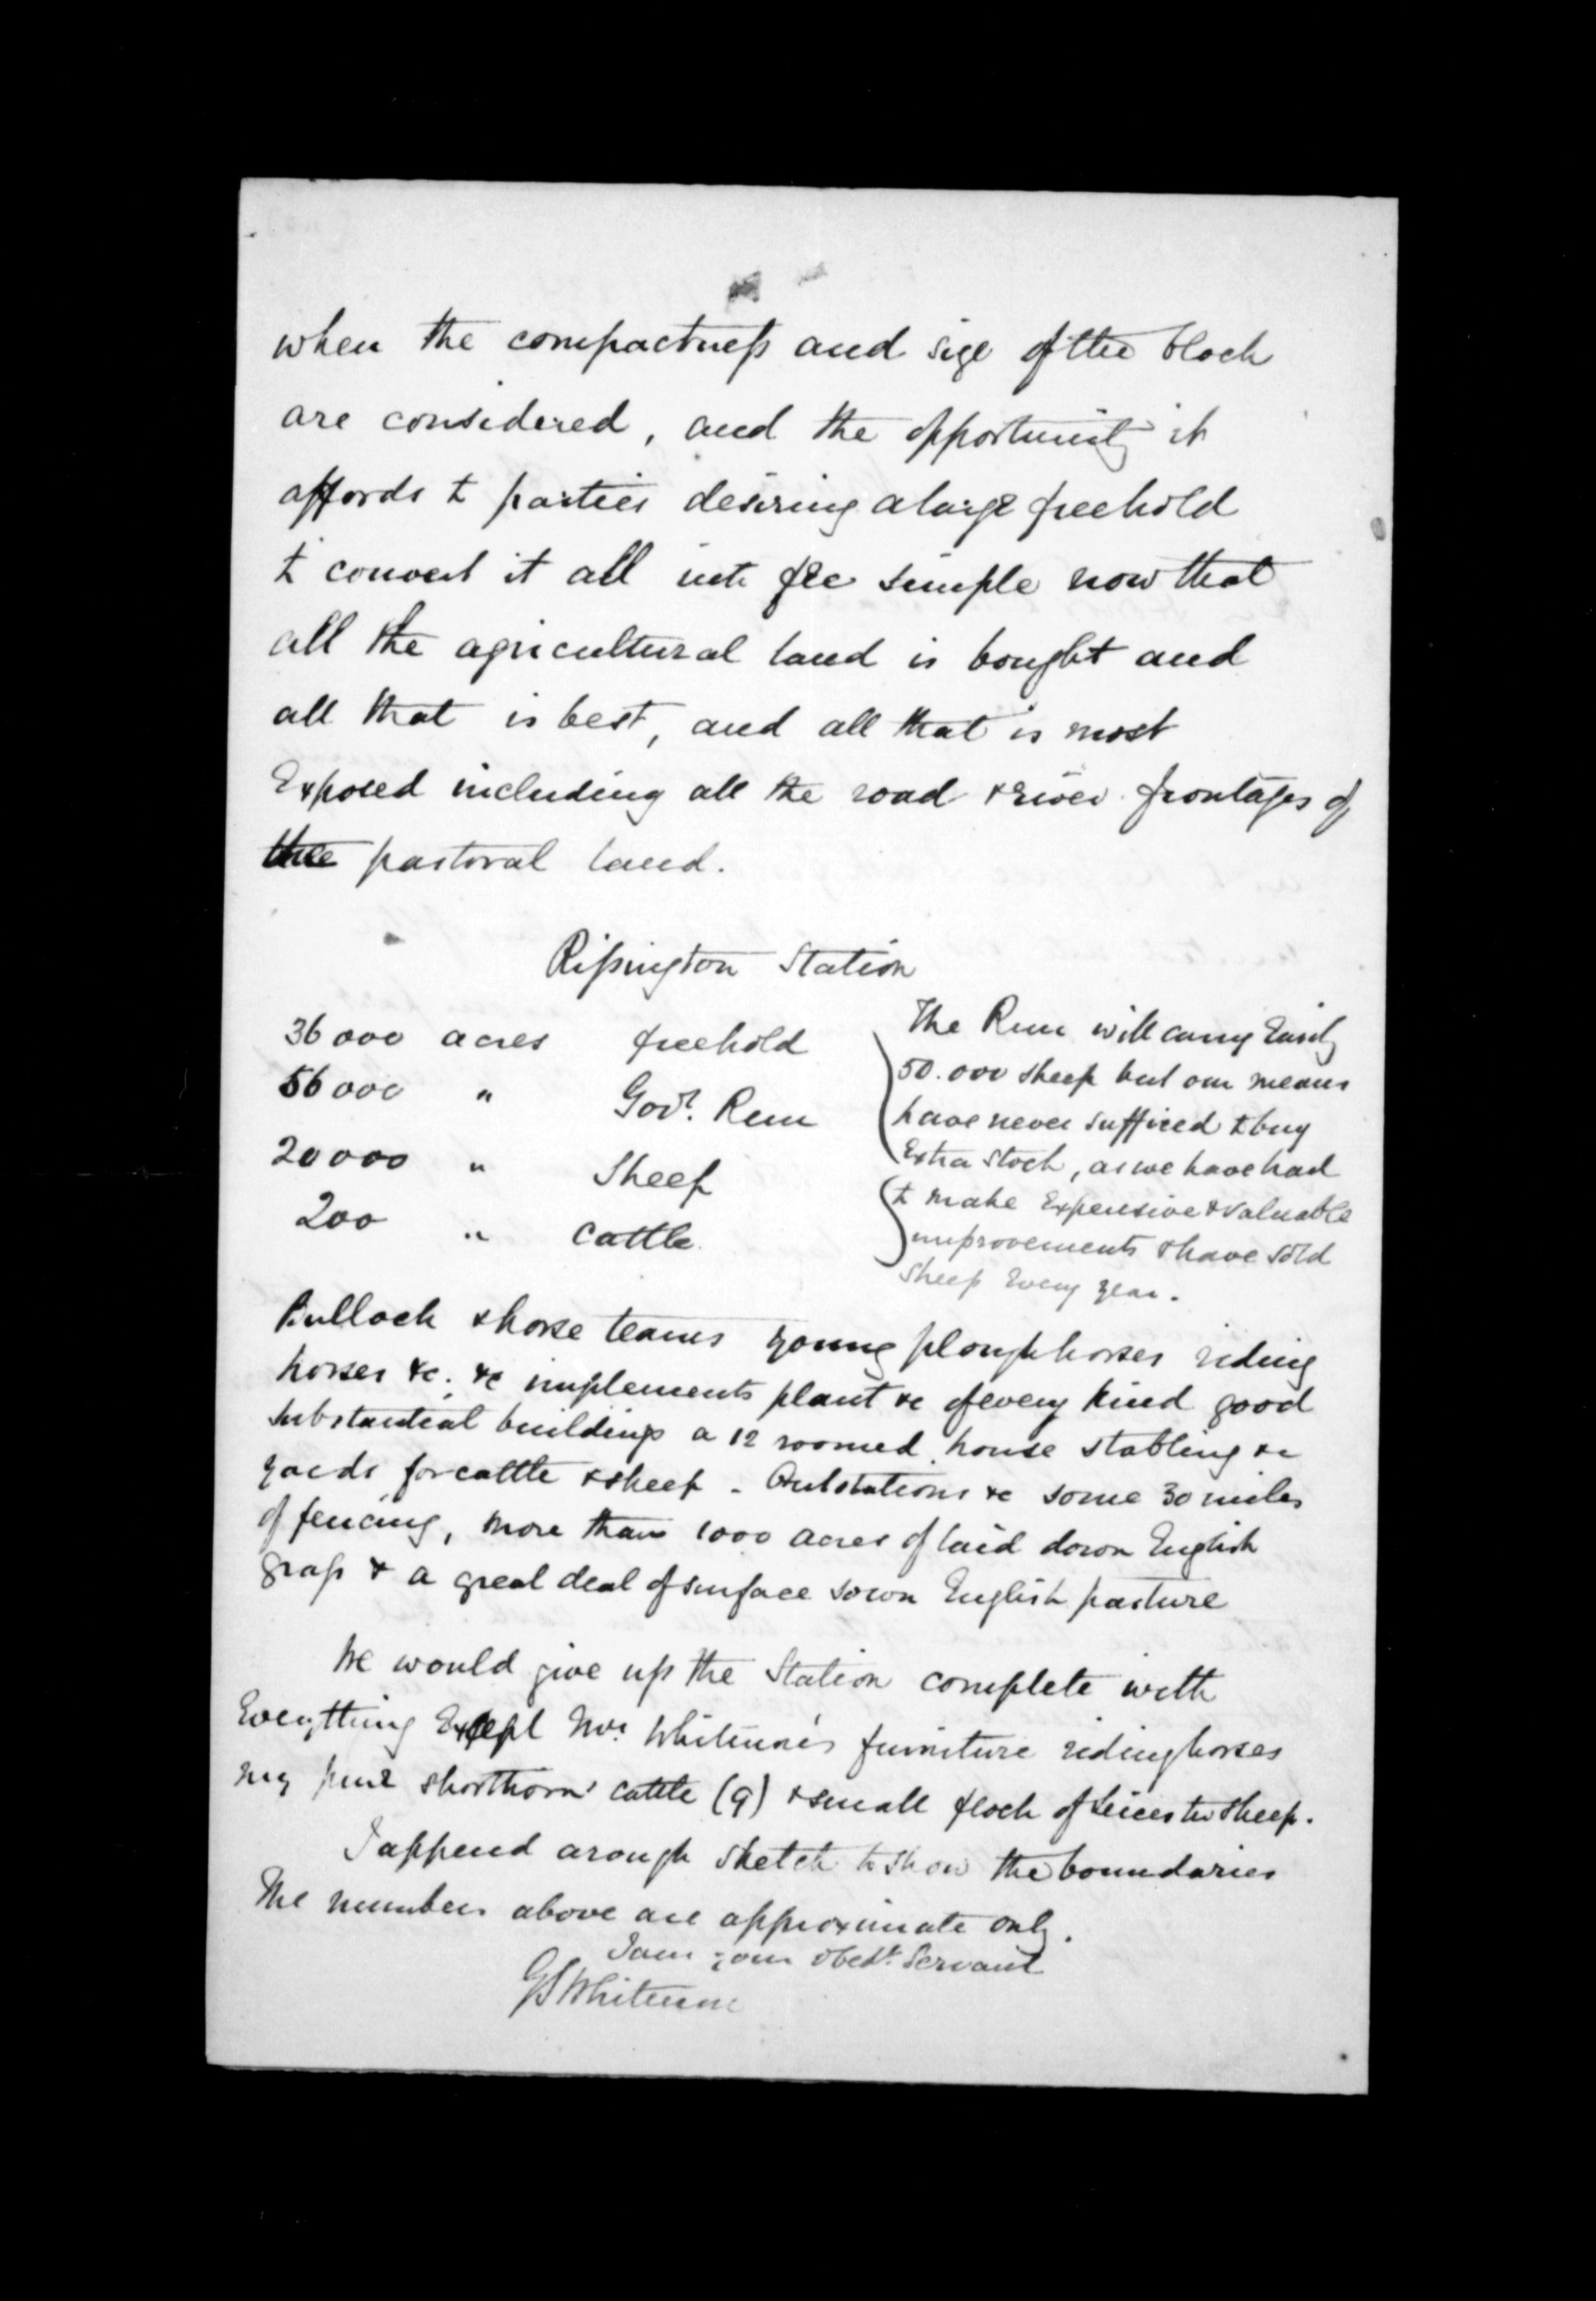 when the compactness and size of the block
are considered, and the opportunity it
affords to parties desiring a large freehold
to convert it all into fee simple now that
all the agricultural land is bought and
all that is best, and all that is most
Exposed including all the road & river frontages of
the pastoral land.
Rissington Station
36000 acres freehold
56000 " Govt. Run
20000 " Sheep
200 " Cattle.
The Run will carry Easily
50.000 sheep but our means
have never sufficed to buy
Extra stock, as we have had
to make Expensive & valuable
improvements & have sold
Sheep Every year.
Bullock & horse teams young plough horses riding
horses &c. &c implements plant &c of every kind good
substantial buildings a 12 roomed house stabling &c
yards for cattle & sheep - Outstations &c some 30 miles
of fencing, more than 1000 acres of laid down English
grass & a great deal of surface sown English pasture
We would give up the Station complete with
Everything Except Mrs. Whitmore's furniture riding horses
my pure shorthorn cattle (9) & small flock of Leicester sheep.
I append a rough sketch to show the boundaries
The numbers above are approximate only.
I am your obedt. Servant
GSWhitmore